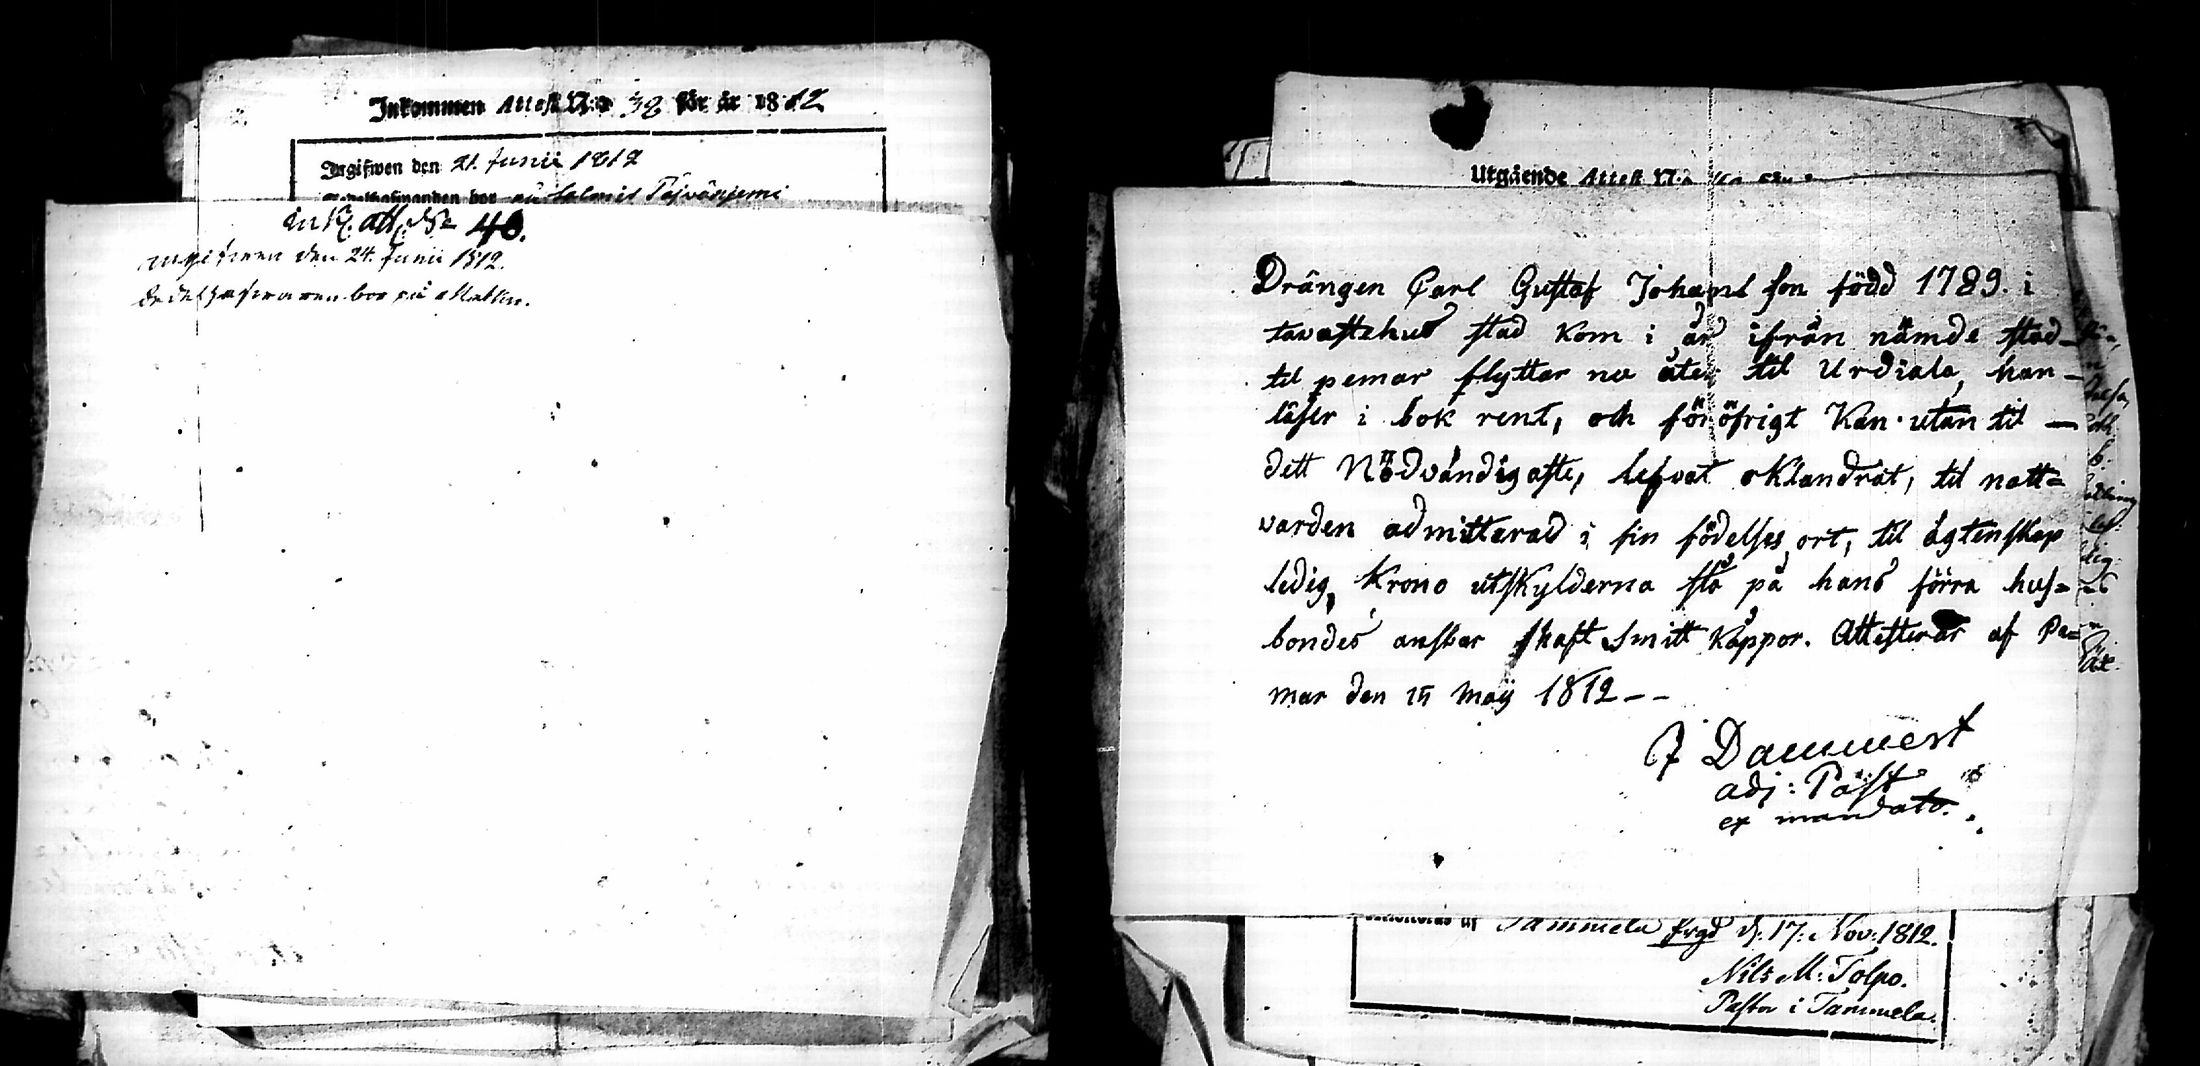 Inkommen Attest N:o 39 för år 1812
Ingifwen den 21. Junii 1812
Ink. att. N:o 40.
ingifwen den 24. Junii 1812.
bor på
Utgående Attest N:o
Drängen Carl Gustaf Johans son född 1789. i
tavastehus stad kom i år ifrån nämde stad
til pemar flyttar nu åter til Urdiala, han
läser i bok rent, och för öfrigt kan utan til
dett Nödvändigaste, lefvat oklandrat, til natt=
varden admitterad i sin födelses ort, til ägtenskap
ledig, Krono utskylderna stå på hans förra hus=
bondes ansvar haft Smitt Koppor. Attesteras af Pe=
mar den 15 Maij 1812 – –
J Dammert
adj: Past
ex mandato.
Attesteras af Tammela Prgd d. 17: Nov: 1812.
Nils M: Tolpo.
Pastor i Tammela.